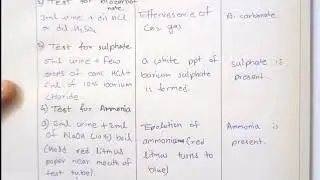 2) Test for biocarbo
nate.
3ml urine + dil HCl
or dil. H2SO4
Effervesence of
Co2 gas
Bicarbonate
3) Test for sulphate
5ml urine + few
drops of conc HCl +
2ml of 10% barium
chloride.
a white ppt of
barium sulphate
is formed.
sulphate is
present.
4) Test for Ammonia
a) 3ml urine + 2ml
of NaOH (10%) boil
(Hold red litmus
paper near mouth of
test tube).
Evolution of
ammonia (red
litmus turns to
blue)
Ammonia is
present.